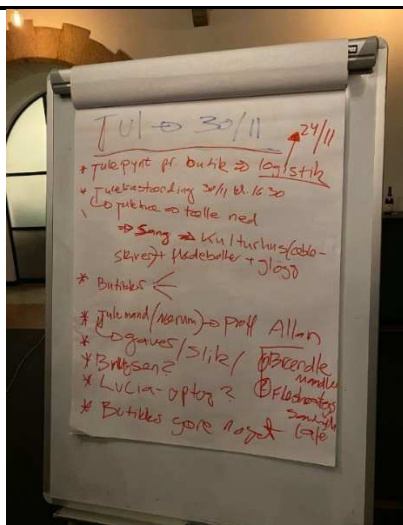 JUL → 30/11
24/11
* Julepynt pr. butik ⇒ logistik
* Juletræstænding 30/11 kl. 16.30
tælle ned
⇒ Sang ⇒ Kulturhus (æble-
skiver) + flødeboller + gløgg
* Butikker
* Julemand (Nærum) → proff Allan
* gaver/Slik/
* Brugsen?
* Lucia-optog?
* Butikker gøre noget
① Brændte
mandler
② Flæskestegs
sandwich